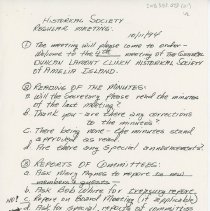 HISTORICAL SOCIETY
REGULAR MEETING.
10/1/84
① The meeting will please come to order -
Welcome to the meeting of the General
Duncan Lamont Clinch Historical Society
of Amelia Island.
② READING OF THE MINUTES:
a Will the Secretary please read the minutes
of the last meeting?
b Thank you - are there any corrections
to the minutes?
c There being none - the minutes stand
approved as read.
d Are there any special announcements?
③ REPORTS OF COMMITTEES:
a Ask Mary Agnes to report
members & guests
b Ask for treasury report
NO! c Report on Board Meeting (if applicable)
d Ask for special reports of committees